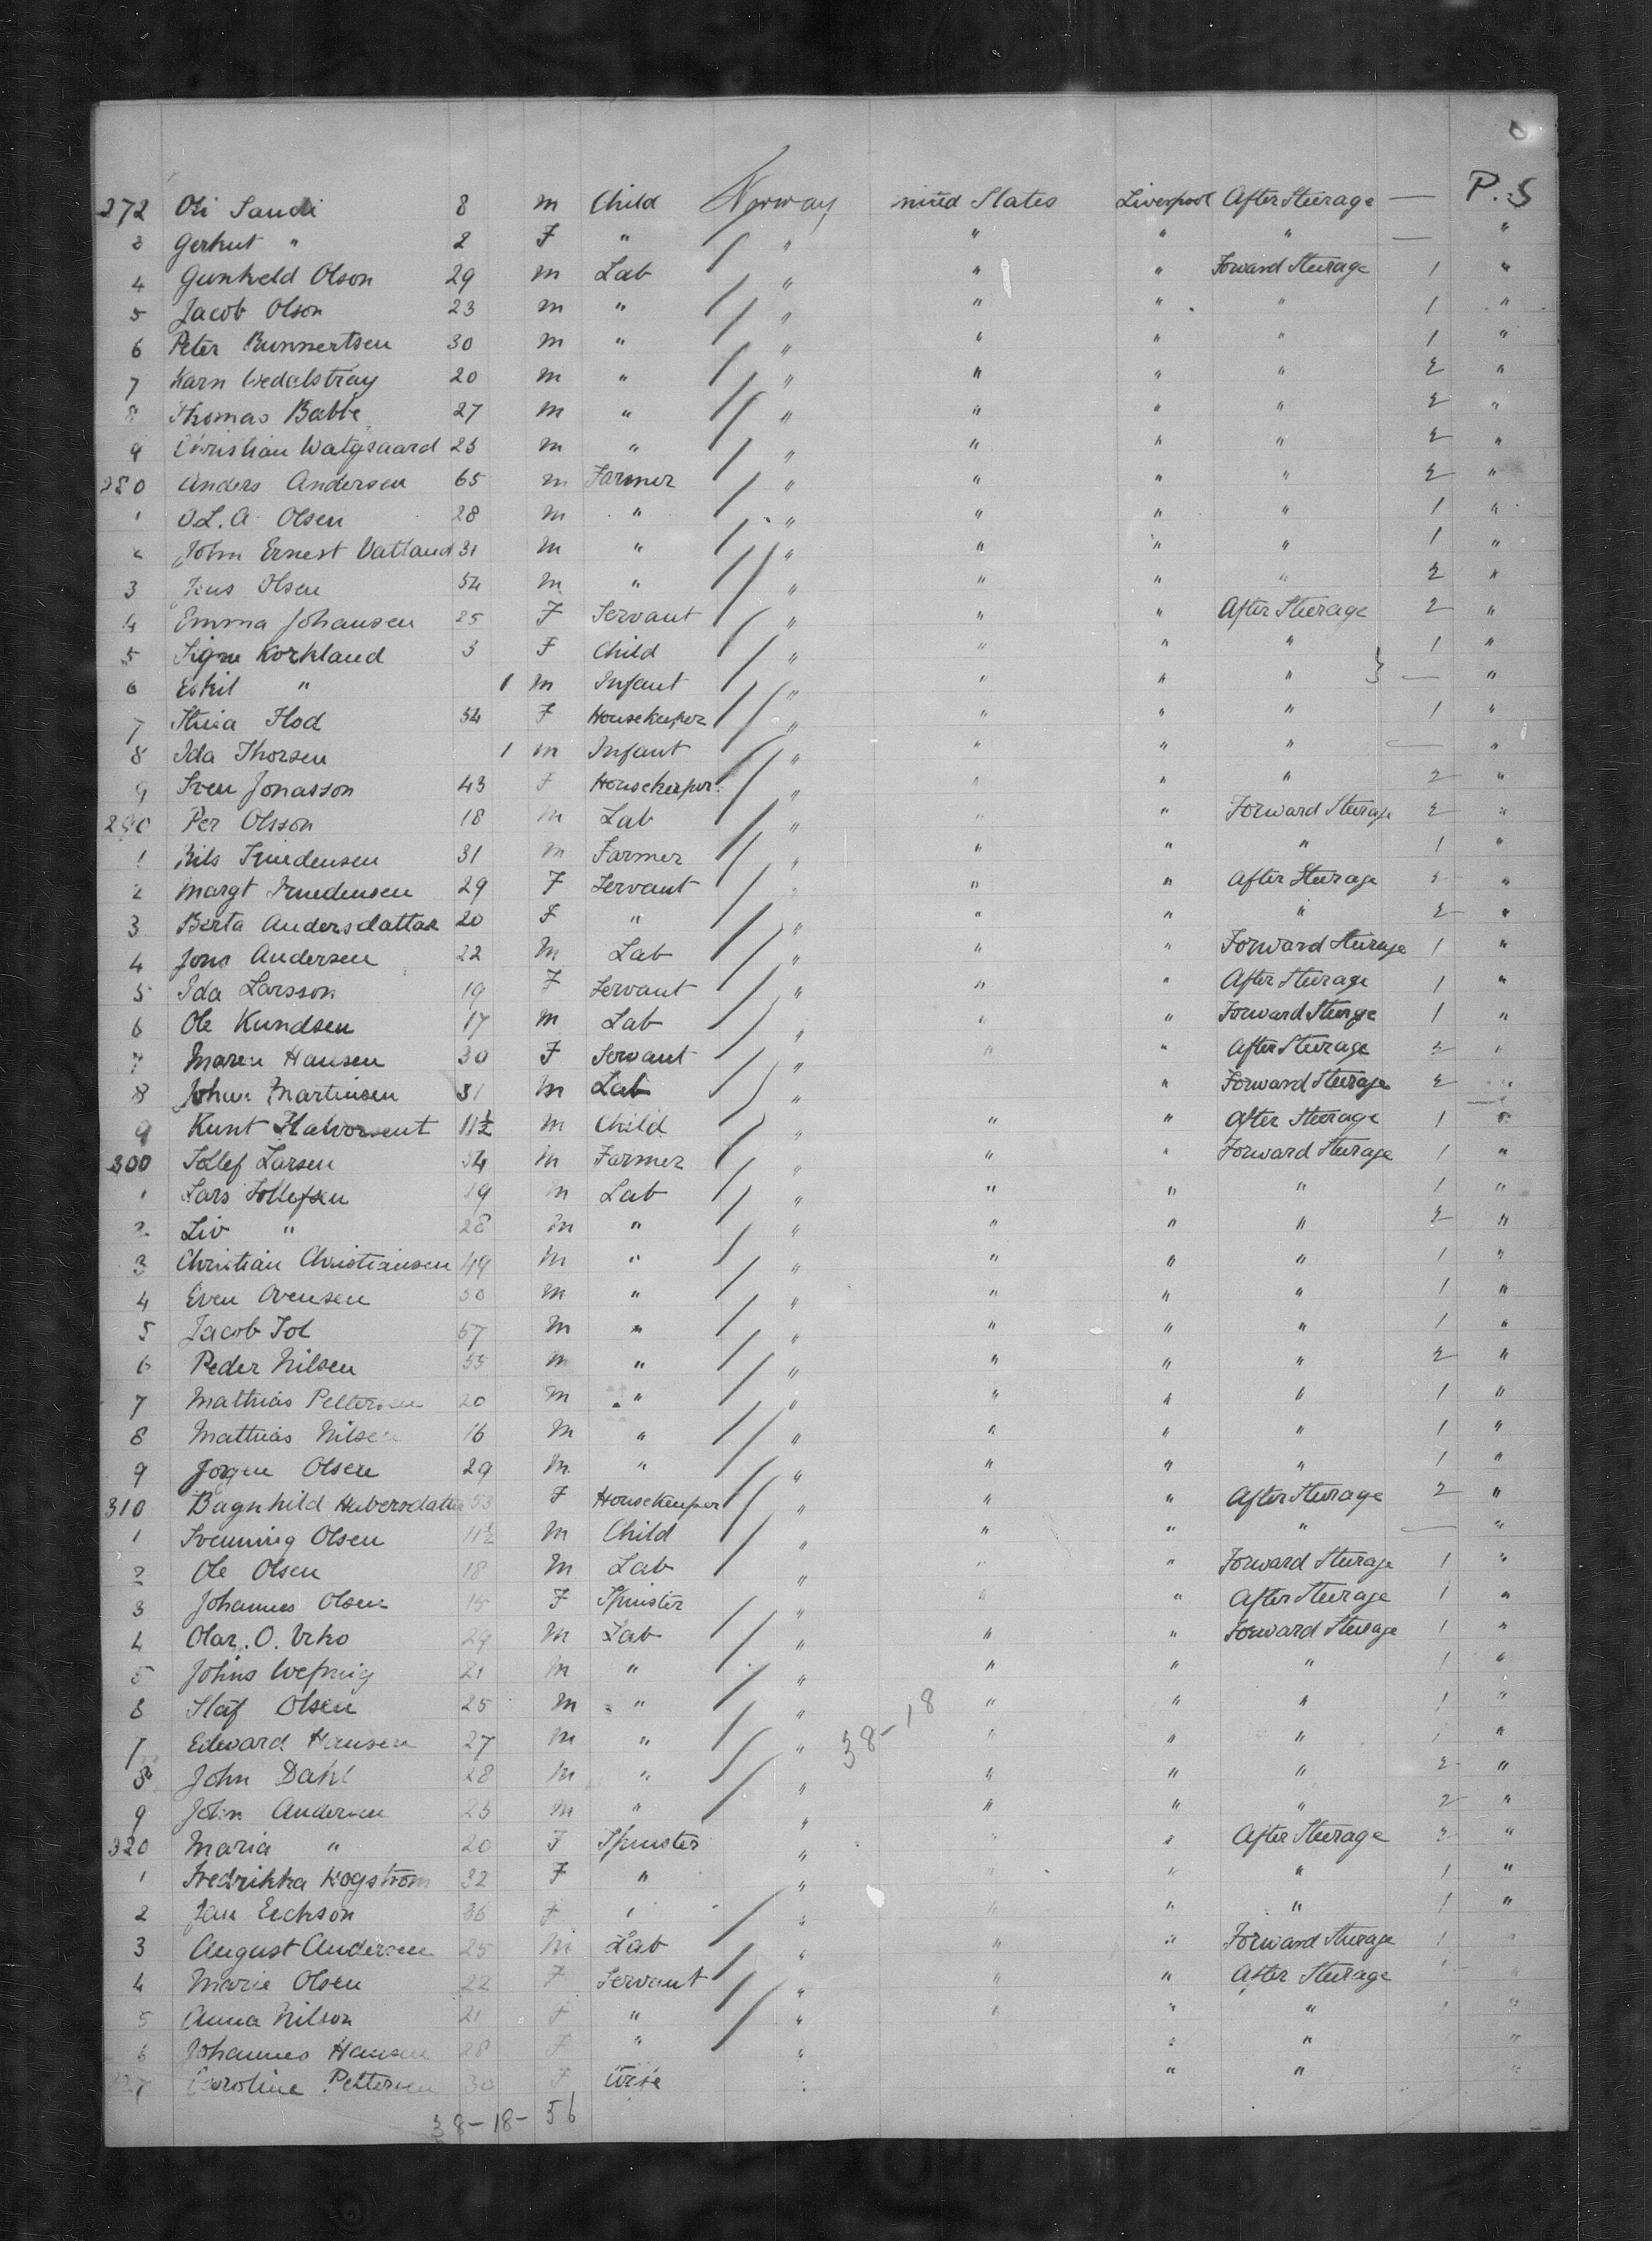 272 Oli Sandi 8 m Child Norway nited States Liverpool After Steerage — P.S
3 Gerhut " 2 F " " " " " — "
4 Gunheld Olson 29 m Lab " " " Forward Steerage 1 "
5 Jacob Olson 23 m " " " " " 1 "
6 Peter Bunnertsen 30 m " " " " " 1 "
7 Karn 20 m " " " " " 2 "
8 Thomas Babbe 27 m " " " " " 2 "
9 Christian Watgsaard 23 m " " " " " 2 "
280 Anders Andersen 65 m Farmer " " " " 2 "
1 O.L.A. Olsen 28 m " " " " " 1 "
2 John Ernest Vatland 31 m " " " " " 1 "
3 Jens Olsen 54 m " " " " " 2 "
4 Emma Johansen 25 F Servant " " " After Steerage 2 "
5 Signe Korkland 3 F Child " " " " 1 "
6 Eskil " 1 m Infant " " " " — "
7 Flod 54 F Housekeeper " " " " 1 "
8 Ida Thorsen 1 m Infant " " " " — "
9 Sven Jonasson 43 F Housekeeper " " " " 2 "
290 Per Olsson 18 m Lab " " " Forward Steerage 2 "
1 Nils 31 m Farmer " " " " 1 "
2 Margt 29 F Servant " " " After Steerage 2 "
3 Berta Andersdattar 20 F " " " " " 2 "
4 Jons Andersen 22 m Lab " " " Forward Steerage 1 "
5 Ida Larsson 19 F Servant " " " After Steerage 1 "
6 Ole Kundsen 17 m Lab " " " Forward Steerage 1 "
7 Maren Hansen 30 F Servant " " " After Steerage 2 "
8 Johan Martinsen 31 m Lab " " Forward Steerage 2 "
9 Kunt Halvorsent 11½ m Child " " " After Steerage 1 "
300 Tollef Larsen 54 m Farmer " " " Forward Steerage 1 "
1 Lars Tollefsen 19 m Lab " " " " 1 "
2 Liv " 28 m " " " " " 2 "
3 Christian Christiansen 49 m " " " " " 1 "
4 Even Ovensen 30 m " " " " " 1 "
5 Jacob Tol 57 m " " " " " 1 "
6 Peder Nilsen 55 m " " " " " 2 "
7 Mathias Pettersen 20 m " " " " " 1 "
8 Mathias Nilsen 16 m " " " " " 1 "
9 Jorgen Olsen 29 m " " " " " 1 "
310 Bagnhild 53 F Housekeeper " " " After Steerage 2 "
1 Svenning Olsen 11½ m Child " " " " — "
2 Ole Olsen 18 m Lab " " " Forward Steerage 1 "
3 Johannes Olsen 15 F Spinster " " " After Steerage 1 "
4 Olar. O. Urko 29 m Lab " " " Forward Steerage 1 "
5 Johns 21 m " " " " " 1 "
6 Olsen 25 m " " 38-18 " " " 1 "
7 Edward Hansen 27 m " " " " " 1 "
8 John Dahl 28 m " " " " " 2 "
9 John Andersen 23 m " " " " " 2 "
320 Maria " 20 F Spinster " " " After Steerage 2 "
1 Fredrikka Kogstrom 32 F " " " " " 1 "
2 Jan Eickson 36 F " " " " " 1 "
3 August Andersen 25 m Lab " " " Forward Steerage 1 "
4 Marie Olsen 22 F Servant " " " After Steerage 1 "
5 Anna Nilson 21 F " " " " " 1 "
6 Johannes Hansen 28 F " " " " "
327 Caroline Pettersen 30 F Wife " " " "
38-18-56